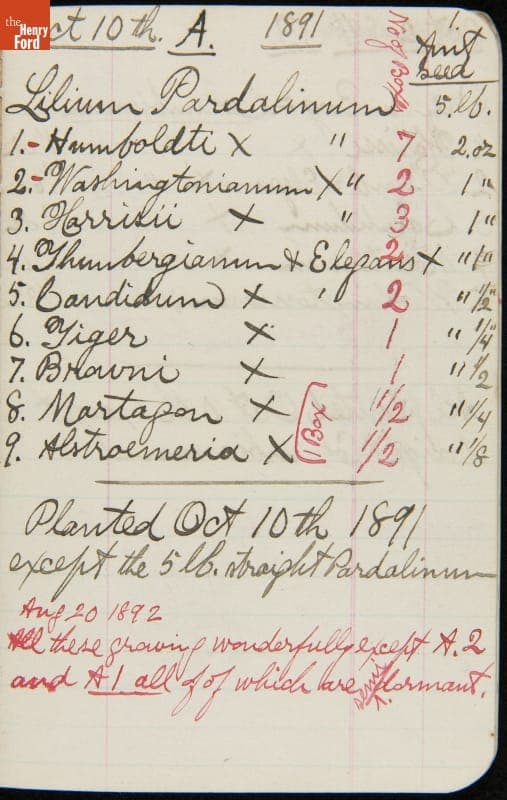 the Henry Ford
Oct 10th. A. 1891 No of Boxes 1. Amt seed
Lilium Pardalinum 5. lb.
1.- Humboldti X " 7 2. oz
2.- Washingtonianum X " 2 1 "
3. Harrisii X " 3 1 "
4. Thunbergianum & Elegans X 2 " 1 "
5. Candidum X " 2 " 1/2 "
6. Tiger X 1 " 1/4 "
7. Browni X 1 " 1/2
8. Martagon X 1 Box 1/2 " 1/4
9. Alstroemeria X 1/2 " 1/8
Planted Oct 10th 1891
except the 5 lb. straight Pardalinum
Aug 20 1892
All these growing wonderfully except A. 2
and A 1 all of of which are semi dormant.